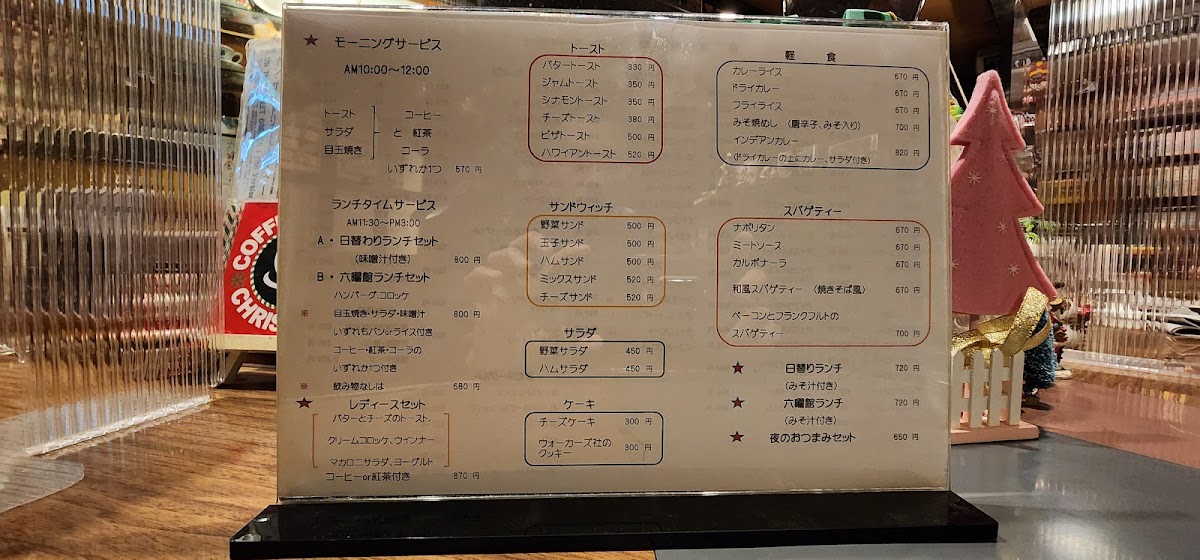 ★ モーニングサービス
AM10:00～12:00
トースト
サラダ
目玉焼き
と
コーヒー
紅茶
コーラ
いずれか1つ 570 円
ランチタイムサービス
AM11:30～PM3:00
A・日替わりランチセット
(味噌汁付き) 800 円
B・六曜館ランチセット
ハンバーグ、コロッケ
※ 目玉焼き・サラダ・味噌汁 800 円
いずれもパンorライス付き
コーヒー・紅茶・コーラの
いずれか1つ付き
※ 飲み物なしは 680 円
★ レディースセット
バターとチーズのトースト、
クリームコロッケ、ウインナー
マカロニサラダ、ヨーグルト
コーヒーor紅茶付き 870 円
トースト
バタートースト 330 円
ジャムトースト 350 円
シナモントースト 350 円
チーズトースト 380 円
ピザトースト 500 円
ハワイアントースト 520 円
サンドウィッチ
野菜サンド 500 円
玉子サンド 500 円
ハムサンド 500 円
ミックスサンド 520 円
チーズサンド 520 円
サラダ
野菜サラダ 450 円
ハムサラダ 450 円
ケーキ
チーズケーキ 300 円
ウォーカーズ社の
クッキー 300 円
軽 食
カレーライス 670 円
ドライカレー 670 円
フライライス 670 円
みそ焼めし (唐辛子、みそ入り) 700 円
インデアンカレー 820 円
(ドライカレーの上にカレー、サラダ付き)
スパゲティー
ナポリタン 670 円
ミートソース 670 円
カルボナーラ 670 円
和風スパゲティー (焼きそば風) 670 円
ベーコンとフランクフルトの
スパゲティー 700 円
★ 日替りランチ 720 円
(みそ汁付き)
★ 六曜館ランチ 720 円
(みそ汁付き)
★ 夜のおつまみセット 650 円